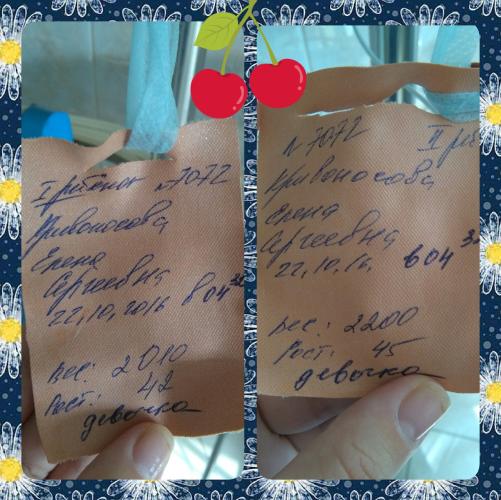 I ребёнок №7072
Кривоносова
Елена
Сергеевна
22,10,2016 в 04 30
Вес: 2010
Рост: 42
девочка
№7072 II ре
Кривоносова
Елена
Сергеевна
22,10,16, в 04 3
Вес: 2200
Рост: 45
девочка